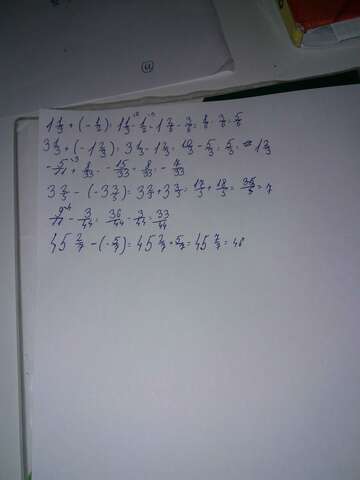 11
1 1/3 + (- 1/2) = 1 1/3 - 1/2 = 1 2/6 - 3/6 = 8/6 - 3/6 = 5/6
3 1/3 + (- 1 2/3) = 3 1/3 - 1 2/3 = 10/3 - 5/3 = 5/3 = 1 2/3
- 5/11 + 8/33 = - 15/33 + 8/33 = - 7/33
3 2/5 - (- 3 3/5) = 3 2/5 + 3 3/5 = 17/5 + 18/5 = 35/5 = 7
9/11 - 3/44 = 36/44 - 3/44 = 33/44
45 2/7 - (- 5/7) = 45 2/7 + 5/7 = 45 7/7 = 46